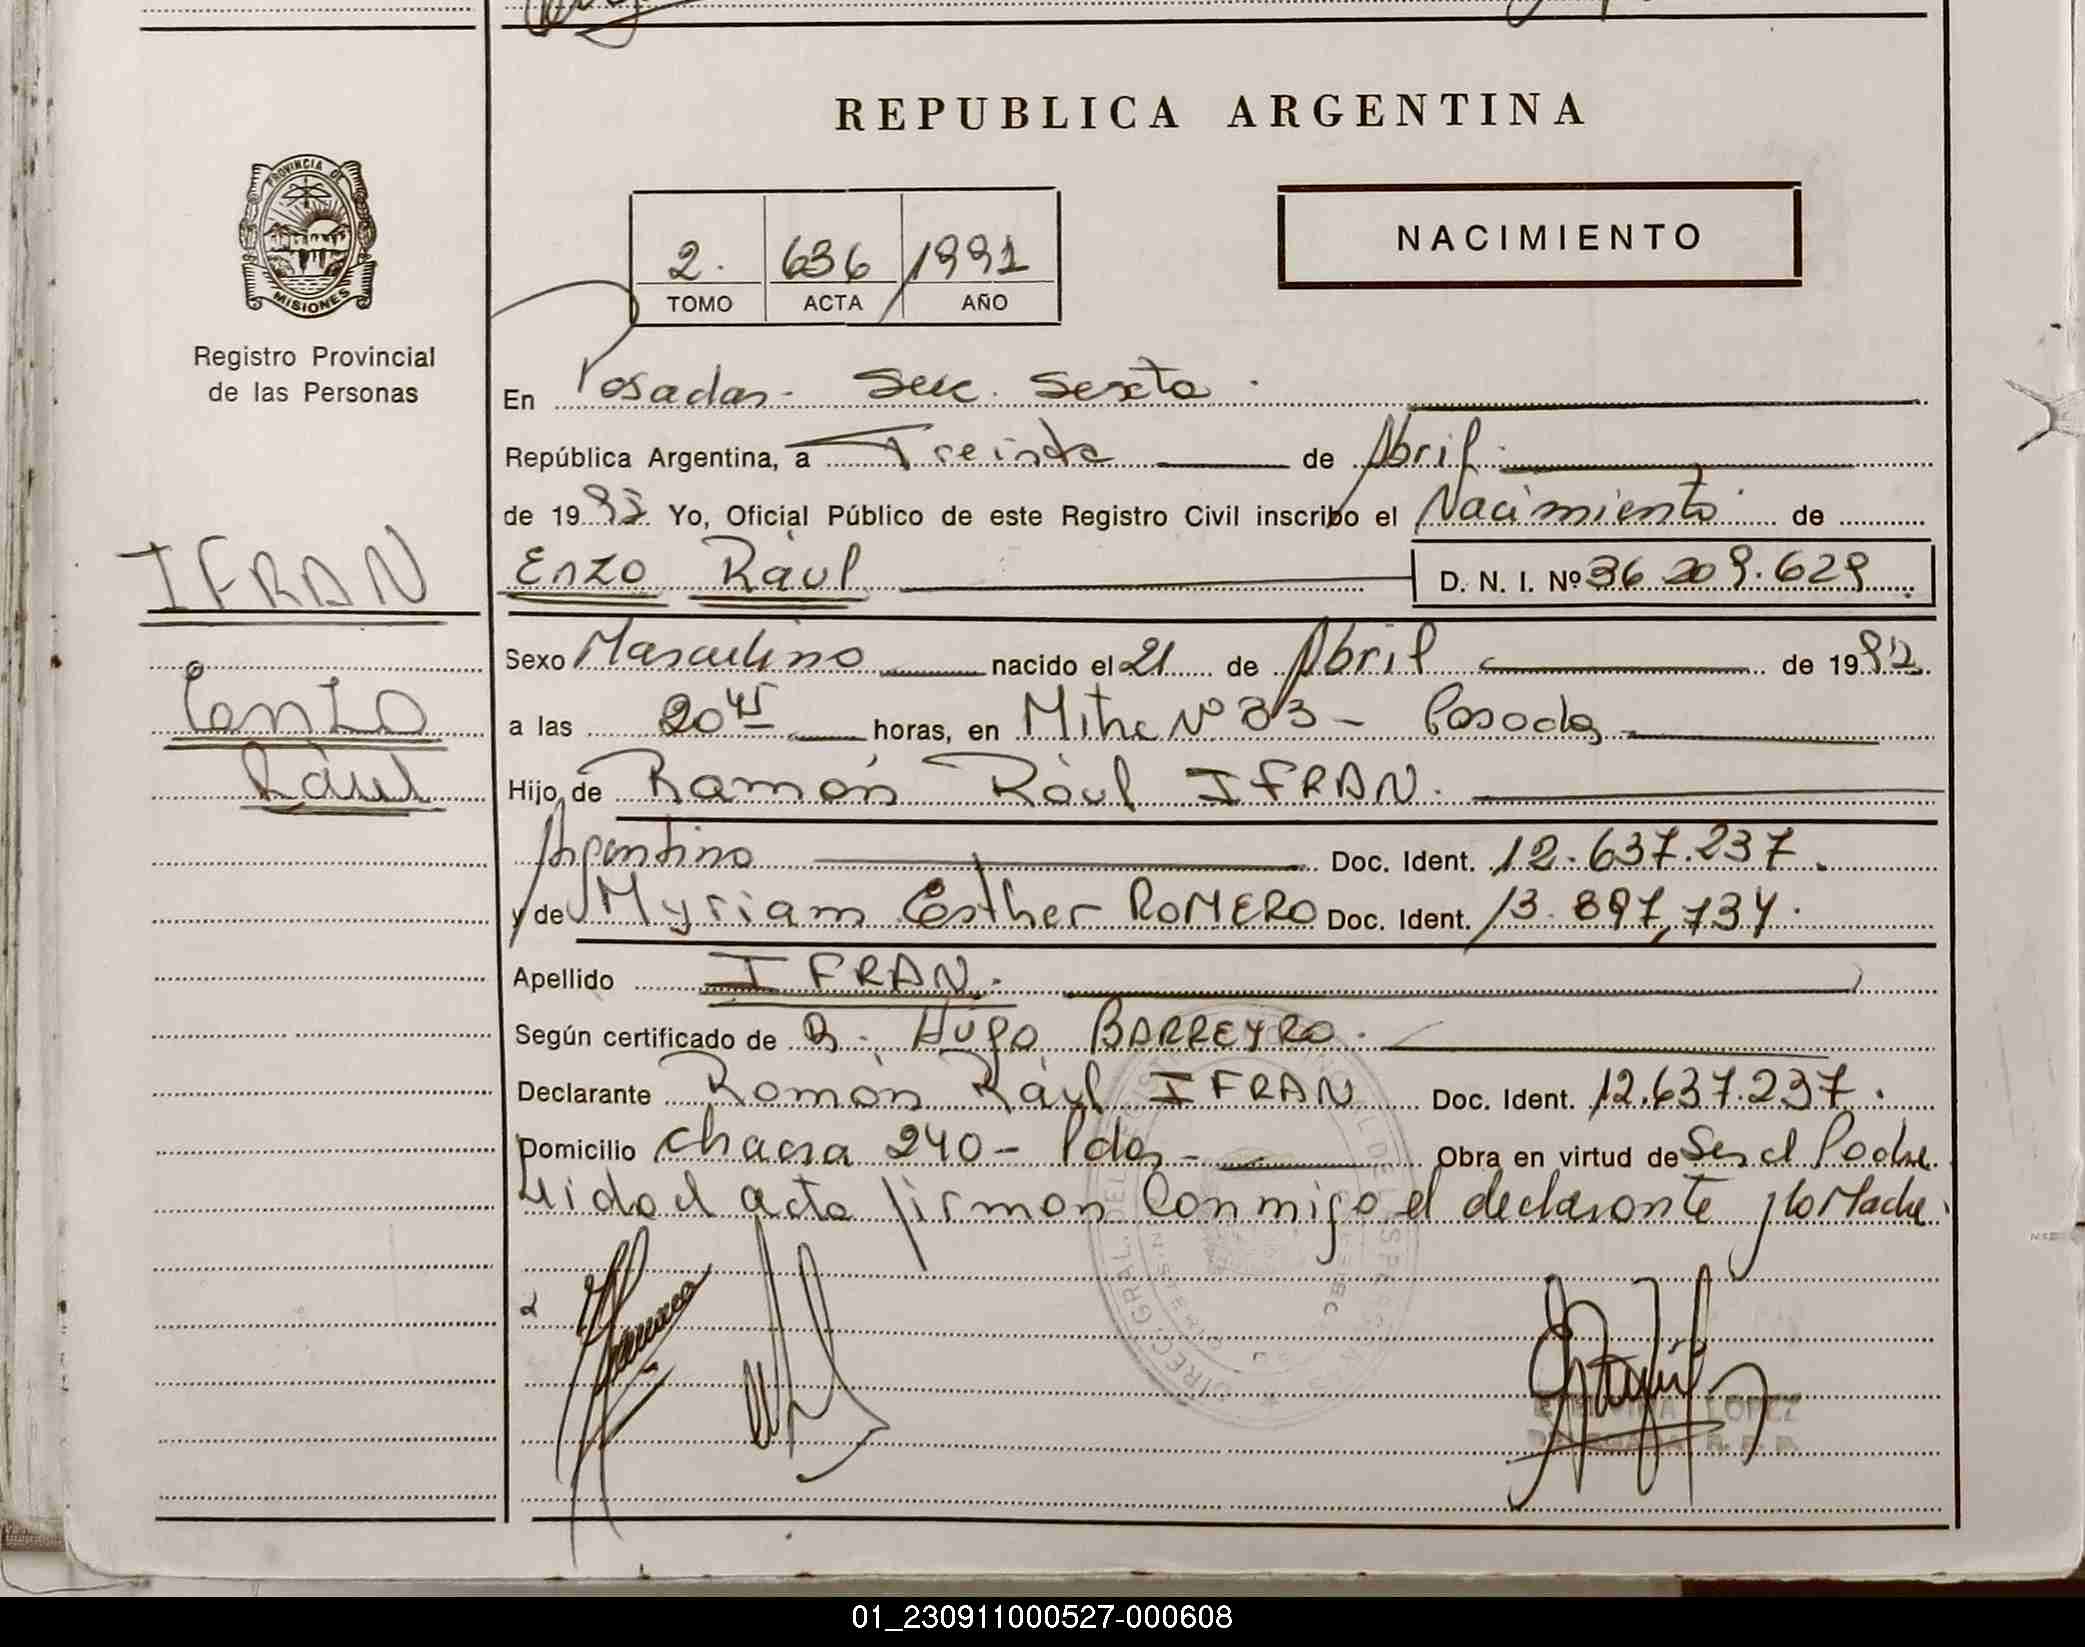 REPUBLICA ARGENTINA
PROVINCIA DE
MISIONES
Registro Provincial
de las Personas
NACIMIENTO
2. 636 1991
TOMO ACTA AÑO
En Posadas - Secc. Sexta.
República Argentina, a Treinta de Abril.
de 19 Yo, Oficial Público de este Registro Civil inscribo el Nacimiento de
Enzo Rául D. N. I. Nº 36.209.629
IFRAN
Enzo
Rául
Sexo Masculino nacido el 21 de Abril de 19
a las 20 45 horas, en Mitre Nº 33 - Posadas
Hijo de Ramón Rául IFRAN.
Argentino Doc. Ident. 12.637.237.
y de Myriam Esther ROMERO Doc. Ident. 13.897,734.
Apellido IFRAN.
Según certificado de Dr. Hugo BARREYRO.
Declarante Ramón Rául IFRAN Doc. Ident. 12.637.237.
Domicilio Chacra 240 - Pdas - Obra en virtud de Ser el Padre.
Leido el acta firman conmigo el declarante y la Madre.
LOPEZ
01_230911000527-000608